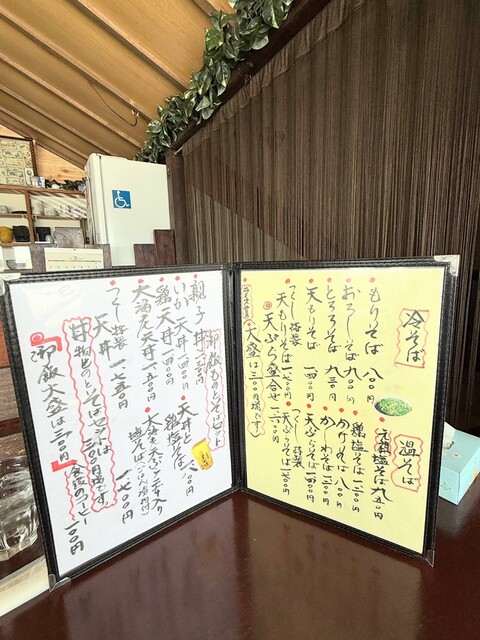 冷そば
もりそば 八〇〇円
おろしそば 九〇〇円
とろろそば 九三〇円
天もりそば 一四〇〇円
つくし特製
天もりそば 一七〇〇円
天ぷら盛合せ 一六〇〇円
大盛は三〇〇円増です
温そば
元祖塩そば 九五〇円
鶏塩そば 一二〇〇円
かけそば 八〇〇円
かしわそば 一一〇〇円
天ぷらそば 一四〇〇円
つくし特製
天ぷらそば 一七〇〇円
御飯ものとそばセット
親子丼
いか天丼 一四〇〇円
鶏天丼 一四〇〇円
大海老天丼
つくし特製
天丼 一七五〇円
丼物とのそばセットは
三〇〇円増です
御飯大盛は二〇〇円
天丼と
鶏塩そば
一七〇〇円
食後のコーヒー
一〇〇円